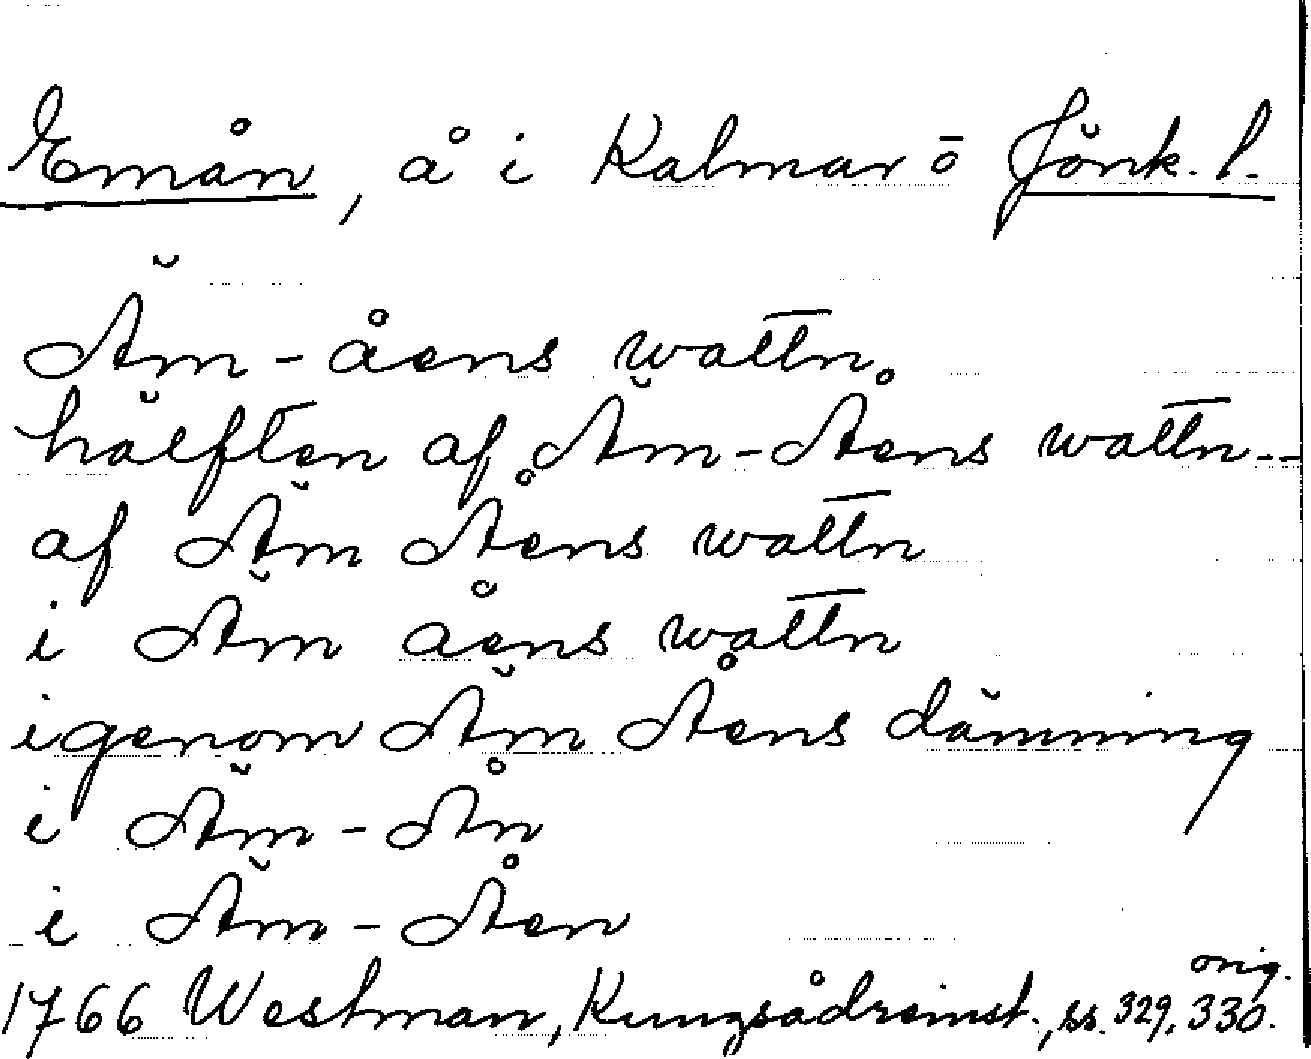 Emån, å i Kalmar o Jönk. l.
Äm-åens wattn
hälften af Äm-Åens wattn--
af Äm Åens wattn
i Äm åens wattn
igenom Äm Åens dämning
i Äm-Ån
i Äm-Åen
orig.
1766 Westman, Kungsådreinst., ss. 329, 330.